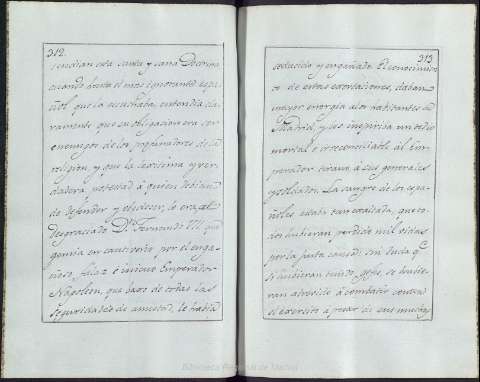 312.
cuando hasta el mas ignorante espa-
ñol que la escuchaba, entendia cla-
ramente que su obligacion era ser
enemigos de los profanadores de la
religion, y que la lexitima y ver-
dadera potestad à quien debian
de defender y obedecer, lo era el
desgraciado Dn. Fernando VII que
gemia en cautiverio por el enga-
ñoso, falaz è iniquo Emperador
Napoleon, que baxo de todas las
seguridades de amistad, le habia
313
seducido y engañado. El conocimien-
to de estas exortaciones, daban
mayor energia a los habitantes de
Madrid, y les inspiraba un odio
mortal è irreconciliable al Em-
perador tirano à sus generales
y soldados. La sangre de los espa-
ñoles estaba tan exaltada, que to-
dos hubieran perdido mil vidas
por la justa causa: sin duda qe
si hubieran tenido gefes, se hubie-
ran atrevido à combatir contra
el exercito a pesar de sus muchas
Biblioteca Regional de Madrid